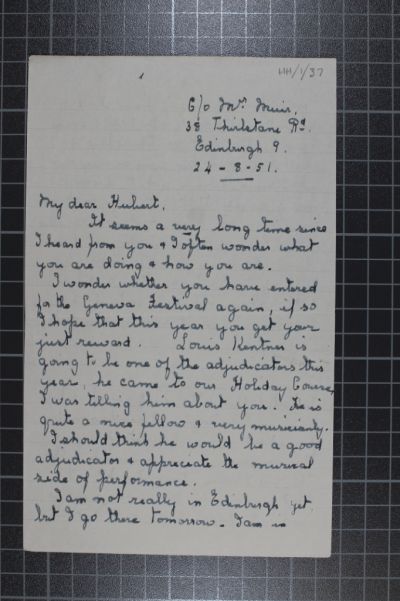 HH/1/37
C/o Mrs. Muir,
38 Thirlstane Rd.
Edinburgh 9.
24-8-51.
My dear Hubert,
It seems a very long time since
I heard from you & I often wonder what
you are doing & how you are.
I wonder whether you have entered
for the Geneva Festival again, if so
I hope that this year you get your
just reward. Louis Kentner is
going to be one of the adjudicators this
year, he came to our Holiday Course,
I was telling him about you. He is
quite a nice fellow & very musicianly.
I should think he would be a good
adjudicator & appreciate the musical
side of performance.
I am not really in Edinburgh yet
but I go there tomorrow. I am in